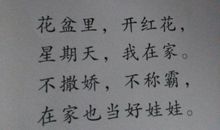 花盆里，开红花，
星期天，我在家。
不撒娇，不称霸，
在家也当好娃娃。